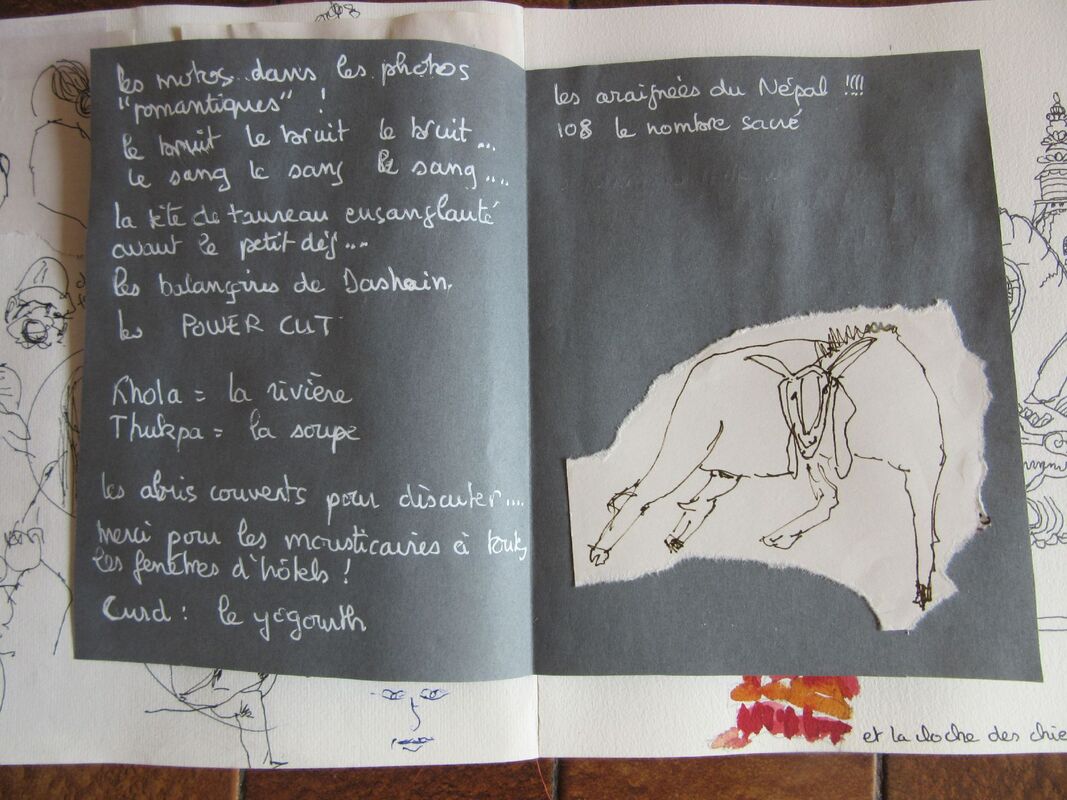 les motos... dans les photos
"romantiques" !
le bruit le bruit le bruit...
le sang le sang le sang....
la tête de taureau ensanglanté
avant le petit déj...
les balançoires de Dashain.
les POWER CUT
Khola = la rivière
Thukpa = la soupe
les abris couverts pour discuter....
merci pour les mousticaires à toutes
les fenêtres d'hôtels !
Curd : le yogourth
les araignées du Népal !!!!
108 le nombre sacré
et la cloche des chie